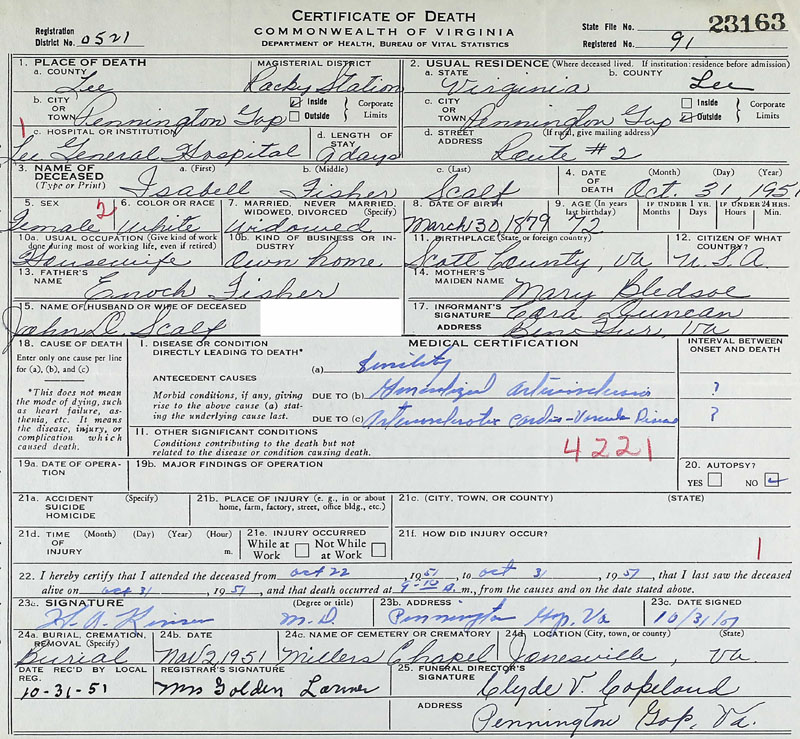 CERTIFICATE OF DEATH
COMMONWEALTH OF VIRGINIA
DEPARTMENT OF HEALTH, BUREAU OF VITAL STATISTICS
Registration District No. 0521
State File No. 23163
Registered No. 91
1. PLACE OF DEATH
a. COUNTY Lee
MAGISTERIAL DISTRICT Rocky Station
2. USUAL RESIDENCE (Where deceased lived. If institution: residence before admission)
a. STATE Virginia
b. COUNTY Lee
b. CITY OR TOWN Pennington Gap
Inside Outside Corporate Limits
c. CITY OR TOWN Pennington Gap
Inside Outside Corporate Limits
1
c. HOSPITAL OR INSTITUTION Lee General Hospital
d. LENGTH OF STAY 9 days
d. STREET ADDRESS (If rural, give mailing address) Route #2
3. NAME OF DECEASED (Type or Print)
a. (First) Isabell
b. (Middle) Fisher
c. (Last) Scalf
4. DATE OF DEATH (Month) (Day) (Year) Oct. 31 1951
5. SEX Female
2
6. COLOR OR RACE White
7. MARRIED, NEVER MARRIED, WIDOWED, DIVORCED (Specify) Widowed
8. DATE OF BIRTH March 30, 1879
9. AGE (In years last birthday) 72
IF UNDER 1 YR. Months Days
IF UNDER 24 HRS. Hours Min.
10a. USUAL OCCUPATION (Give kind of work done during most of working life, even if retired) Housewife
10b. KIND OF BUSINESS OR INDUSTRY Own home
11. BIRTHPLACE (State or foreign country) Scott County, Va
12. CITIZEN OF WHAT COUNTRY? U.S.A.
13. FATHER'S NAME Enoch Fisher
14. MOTHER'S MAIDEN NAME Mary Bledsoe
15. NAME OF HUSBAND OR WIFE OF DECEASED John D. Scalf
17. INFORMANT'S SIGNATURE Cora Duncan
ADDRESS Ben Hur, Va
18. CAUSE OF DEATH
Enter only one cause per line for (a), (b), and (c)
*This does not mean the mode of dying, such as heart failure, asthenia, etc. It means the disease, injury, or complication which caused death.
MEDICAL CERTIFICATION
INTERVAL BETWEEN ONSET AND DEATH
I. DISEASE OR CONDITION DIRECTLY LEADING TO DEATH* (a) Senility
ANTECEDENT CAUSES
Morbid conditions, if any, giving rise to the above cause (a) stating the underlying cause last.
DUE TO (b) Generalized arteriosclerosis ?
DUE TO (c) Arteriosclerotic cardio-vascular disease ?
11. OTHER SIGNIFICANT CONDITIONS
Conditions contributing to the death but not related to the disease or condition causing death.
4221
19a. DATE OF OPERATION
19b. MAJOR FINDINGS OF OPERATION
20. AUTOPSY?
YES NO
21a. ACCIDENT SUICIDE HOMICIDE (Specify)
21b. PLACE OF INJURY (e. g., in or about home, farm, factory, street, office bldg., etc.)
21c. (CITY, TOWN, OR COUNTY) (STATE)
21d. TIME OF INJURY (Month) (Day) (Year) (Hour) m.
21e. INJURY OCCURRED
While at Work Not While at Work
21f. HOW DID INJURY OCCUR?
1
22. I hereby certify that I attended the deceased from Oct 22, 1951, to Oct 31, 1951, that I last saw the deceased
alive on Oct 31, 1951, and that death occurred at m., from the causes and on the date stated above.
23a. SIGNATURE (Degree or title) M.D.
23b. ADDRESS Pennington Gap, Va
23c. DATE SIGNED 10/31/51
24a. BURIAL, CREMATION, REMOVAL (Specify) Burial
24b. DATE Nov 2 1951
24c. NAME OF CEMETERY OR CREMATORY Millers Chapel
24d. LOCATION (City, town, or county) (State) Jonesville, Va.
DATE REC'D BY LOCAL REG. 10-31-51
REGISTRAR'S SIGNATURE Mrs Golden
25. FUNERAL DIRECTOR'S SIGNATURE Clyde V. Copeland
ADDRESS Pennington Gap, Va.